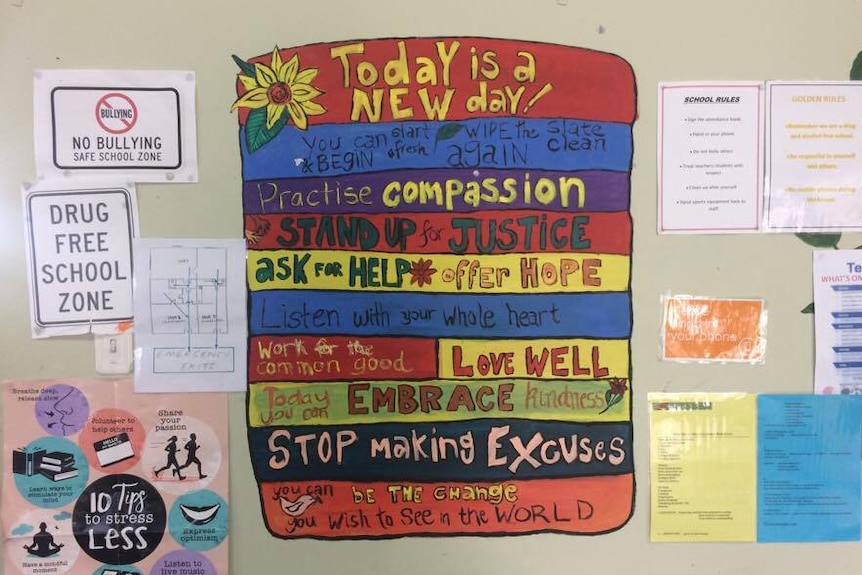 BULLYING
NO BULLYING
SAFE SCHOOL ZONE
DRUG
FREE
SCHOOL
ZONE
EMERGENCY
EXITS
Breathe deep,
release slow
Volunteer to
help others
HELLO
Share
your
passion
Learn ways to
stimulate your
mind
10 Tips
to stress
Less
Express
optimism
Have a mindful
moment
Listen to
live music
Today is a
NEW day!
you can start WIPE the slate
& BEGIN afresh again clean
Practise compassion
STAND UP for JUSTICE
ask for HELP offer HOPE
Listen with your whole heart
Work for the
common good
LOVE WELL
Today
you can EMBRACE kindness
STOP making EXCUSES
you can be THE change
you Wish to See in the WORLD
SCHOOL RULES
Sign the attendance book
Hand in your phone
Do not bully others
Treat teachers/students with
respect
Clean up after yourself
Hand sports equipment back to
staff
GOLDEN RULES
Remember we are a drug
and alcohol free school.
Be respectful to yourself
and others.
No mobile phones during
Te
WHAT'S ON
your phone